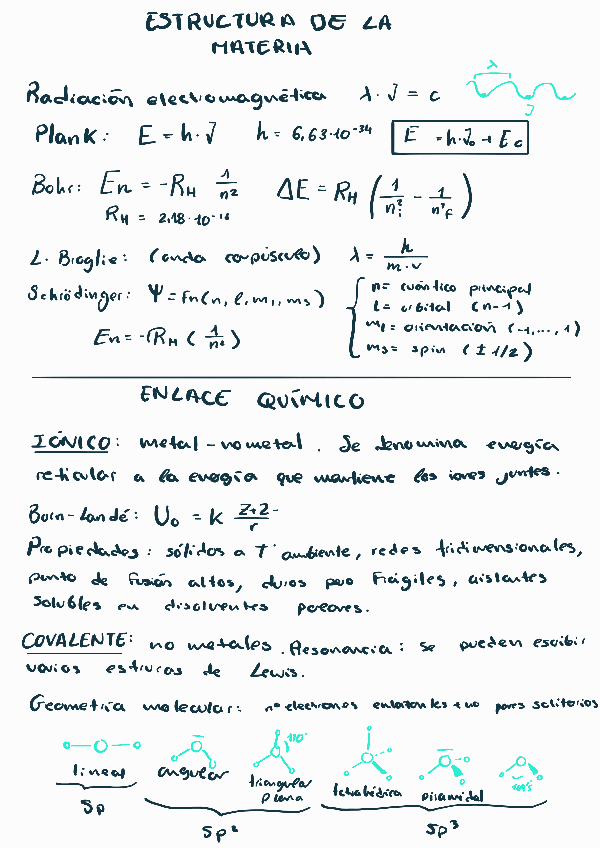 ESTRUCTURA DE LA
MATERIA
λ
Radiación electromagnética λ · ν = c
ν
Plank: E = h · ν h = 6,63·10⁻³⁴ E = h·ν₀ + Ec
Bohr: En = -R_H 1/n² ΔE = R_H (1/n²i - 1/n²f)
R_H = 2,18·10⁻¹⁸
L. Broglie: (onda corpúsculo) λ = h/m·v
Schrödinger: Ψ = Fn(n, l, m_l, m_s)
En = -(R_H (1/n²)
n = cuántico principal
l = orbital (n-1)
m_l = orientación (-1,...,1)
m_s = spin (± 1/2)
ENLACE QUÍMICO
IÓNICO: metal - no metal. Se denomina energía
reticular a la energía que mantiene los iones juntos.
Born-Landé: U₀ = K Z+Z-/r
Propiedades: sólidos a Tª ambiente, redes tridimensionales,
punto de fusión altos, duros pero frágiles, aislantes
solubles en disolventes polares.
COVALENTE: no metales. Resonancia: se pueden escribir
varios estruras de Lewis.
Geometría molecular: nº electrones enlazantes + no pares solitarios
110°
lineal angular triangular plana tetraédrica piramidal
Sp Sp² Sp³